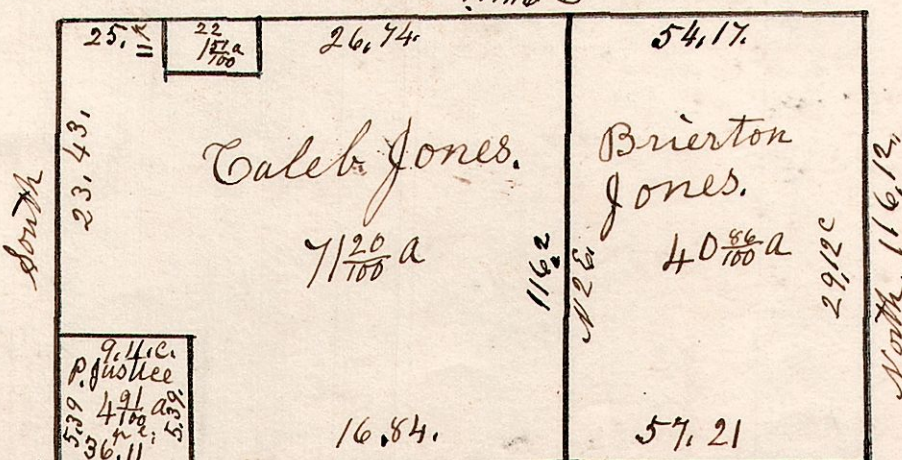 25.11
22
1 51/100 a
26.74.
54.17.
South
23.43.
Caleb Jones.
71 20/100 a
116.2
N2E.
Brierton
Jones.
40 86/100 a
29,12 c
North 116,12,
9.11.C.
P. Justice
4 91/100 a
5,39
5,39.
36.11
16.84.
57.21